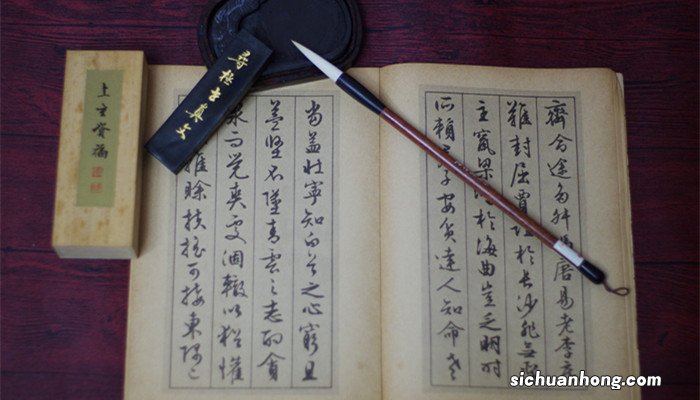 齊命途多舛唐易老李廣
難封屈賈於長沙非無
主竄梁於海曲豈乏明時
所賴子安貧達人知命老
當益壯寧知白首之心窮且
益堅不墜青雲之志酌貪
泉而覺爽處涸轍以猶懽
雖賒扶搖可接東隅已
sichuanhong.com